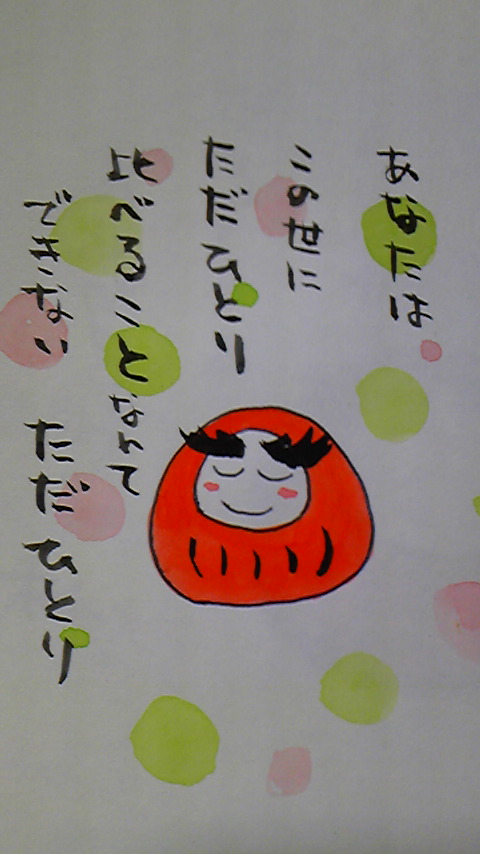 あなたは
この世に
ただひとり
比べることなんて
できない ただひとり